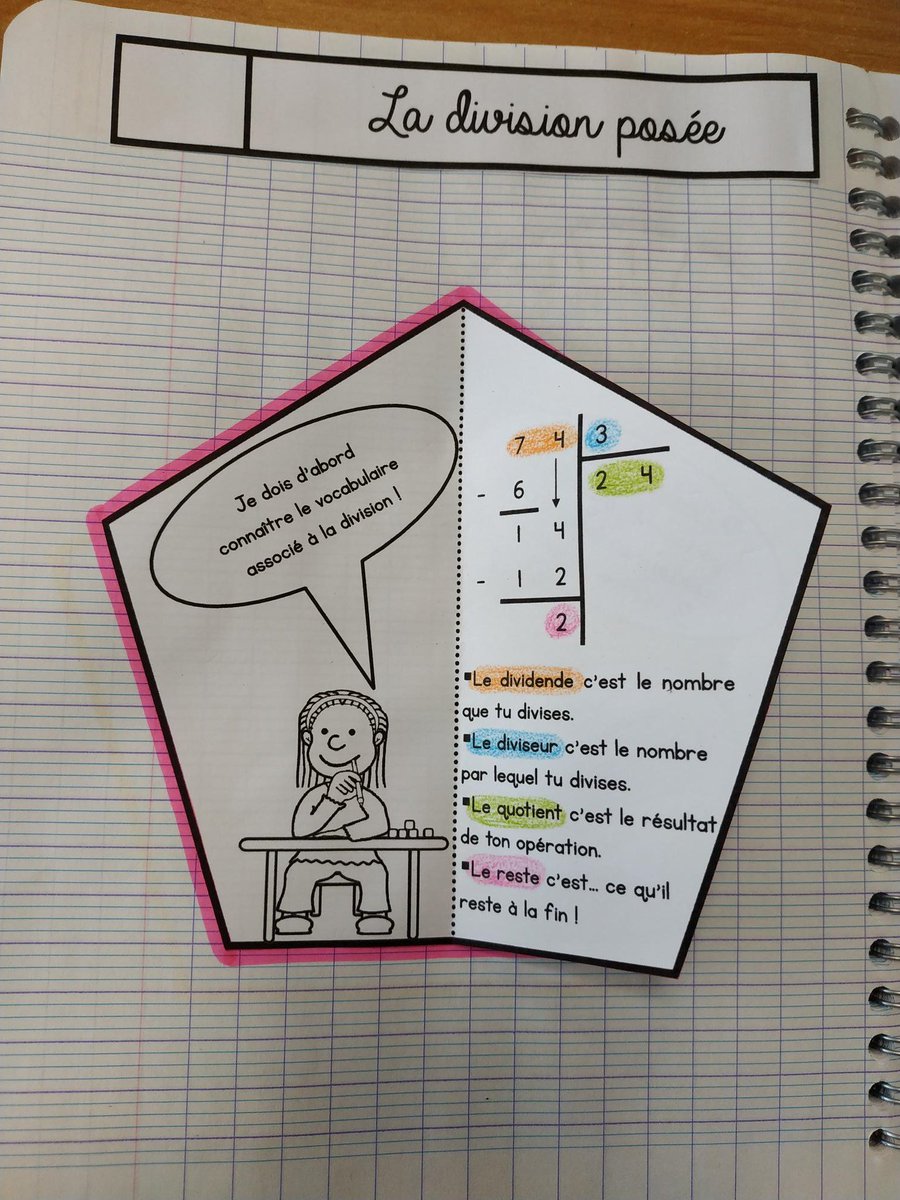 La division posée
Je dois d'abord
connaître le vocabulaire
associé à la division !
7 4 3
2 4
- 6
1 4
- 1 2
2
▪Le dividende c'est le nombre
que tu divises.
▪Le diviseur c'est le nombre
par lequel tu divises.
▪Le quotient c'est le résultat
de ton opération.
▪Le reste c'est... ce qu'il
reste à la fin !